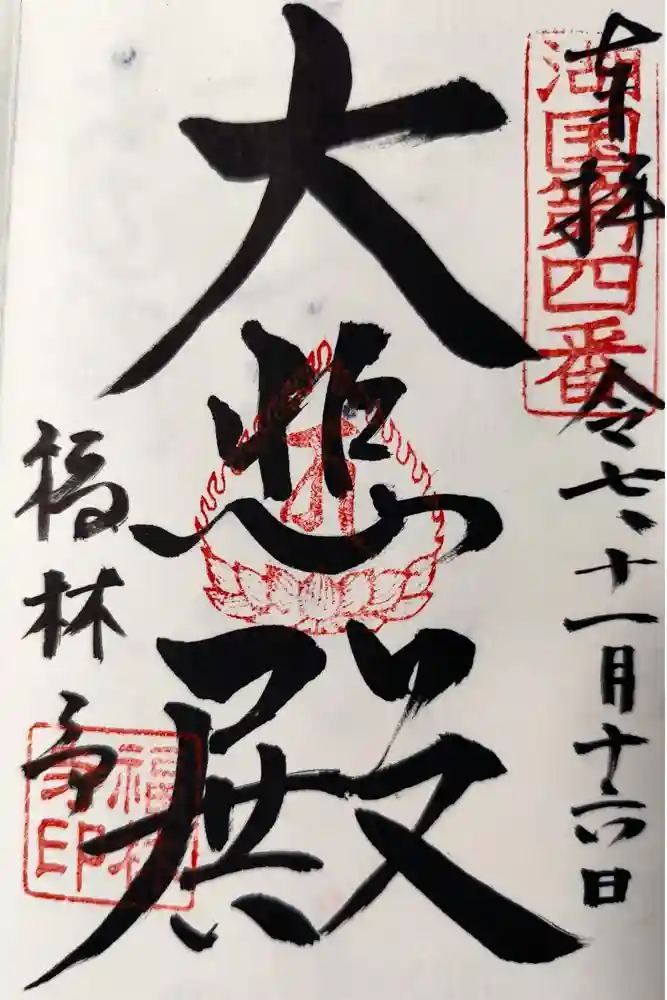 奉拝
湖国第四番
令七、十一月十六日
大悲殿
福林寺
福林寺印